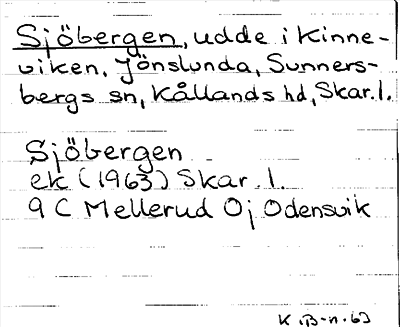 Sjöbergen, udde i Kinne-
viken, Jönslunda, Sunners-
bergs sn, Kållands hd, Skar.l.
Sjöbergen
ek (1963) Skar.l.
9 C Mellerud Oj Odensvik
K.B-n.63